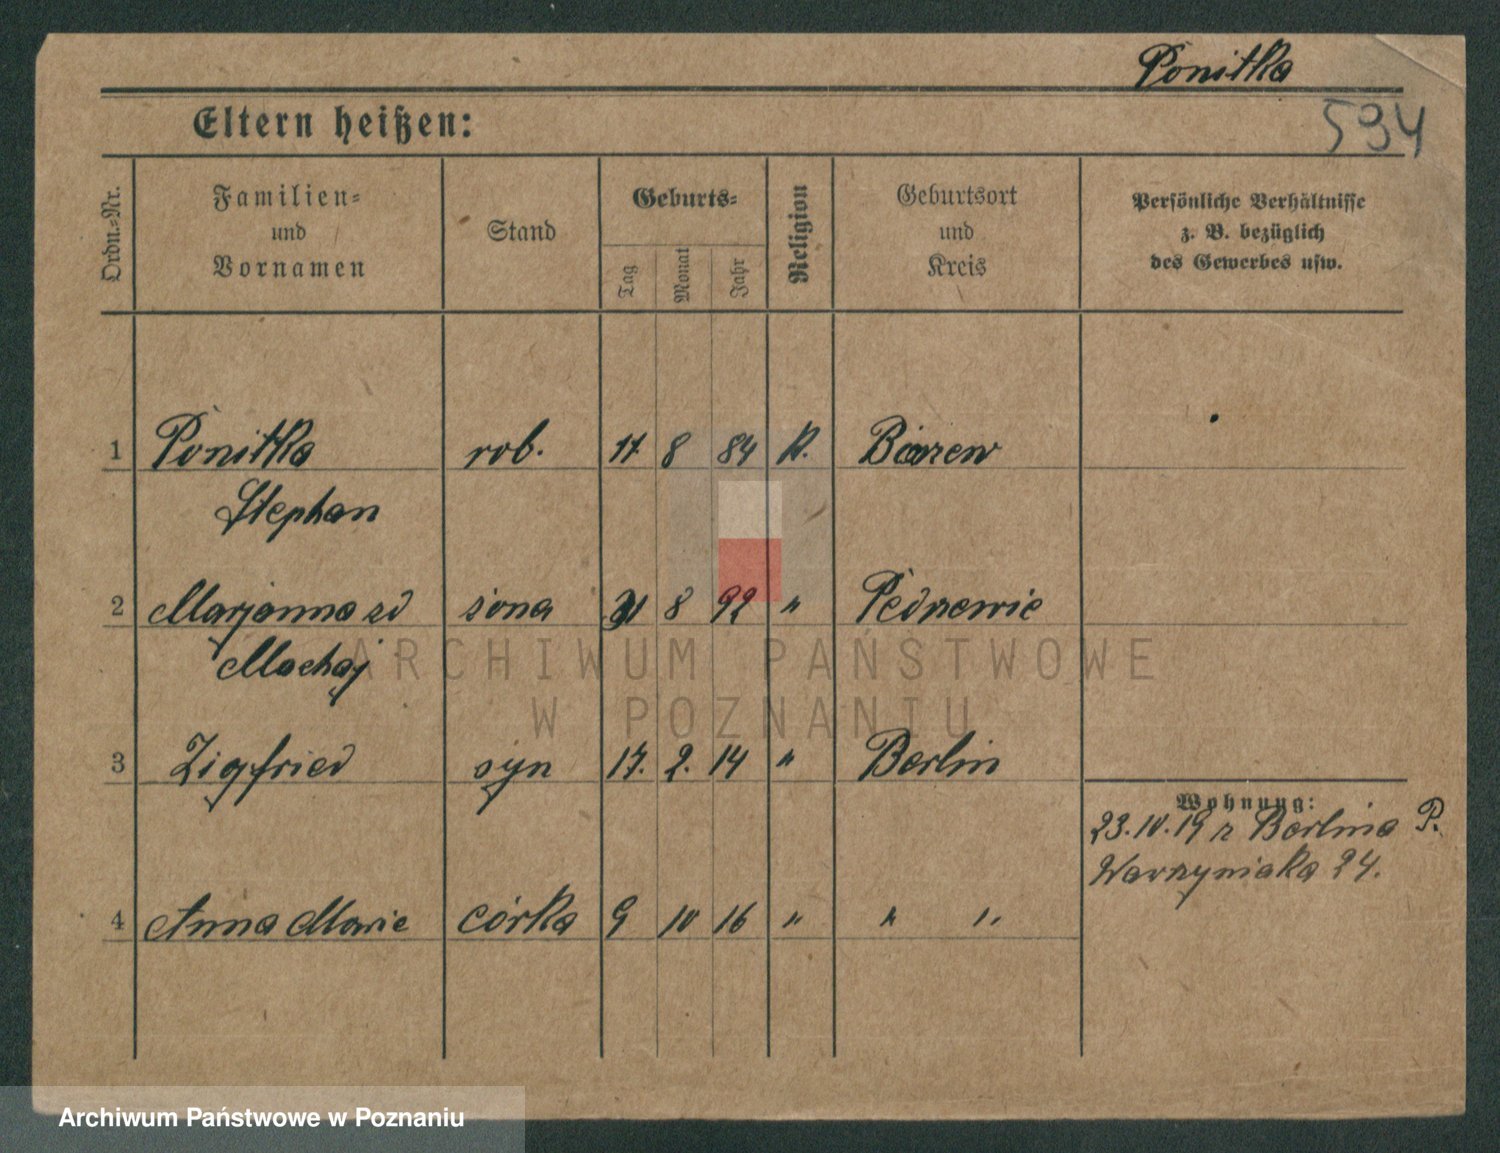 Ponitka
594
Eltern heißen:
Ordn.-Nr.
Familien-
und
Vornamen
Stand
Geburts-
Tag
Monat
Jahr
Religion
Geburtsort
und
Kreis
Persönliche Verhältnisse
z. B. bezüglich
des Gewerbes usw.
1 Ponitka rob. 8 84 K.
Stephan
2 Marjanna zd żona 8 92 "
Machaj
3 Zigfried syn 17. 2. 14 " Berlin
Wohnung:
23.IV.19 z Berlina P.
Warzyniaka 24.
4 Anna Marie córka 9 10 16 " " "
ARCHIWUM PAŃSTWOWE
W POZNANIU
Archiwum Państwowe w Poznaniu